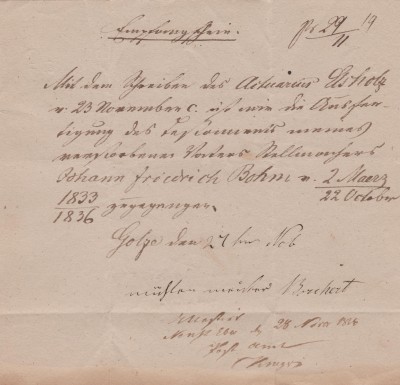 Empfangschein.
pr 29/11
Mit dem Schreiben des Actuarius
v. 23 November c. ist mir die Ausfer-
tigung des Testaments meines
verstorbenen Vaters Stellmachers
Johann Friedrich Bohm v. 2 Maerz
1833 22 October
1836 zugegangen.
Golpe den 27 ten Nvb
mühlen meister Borchert
28 Nov